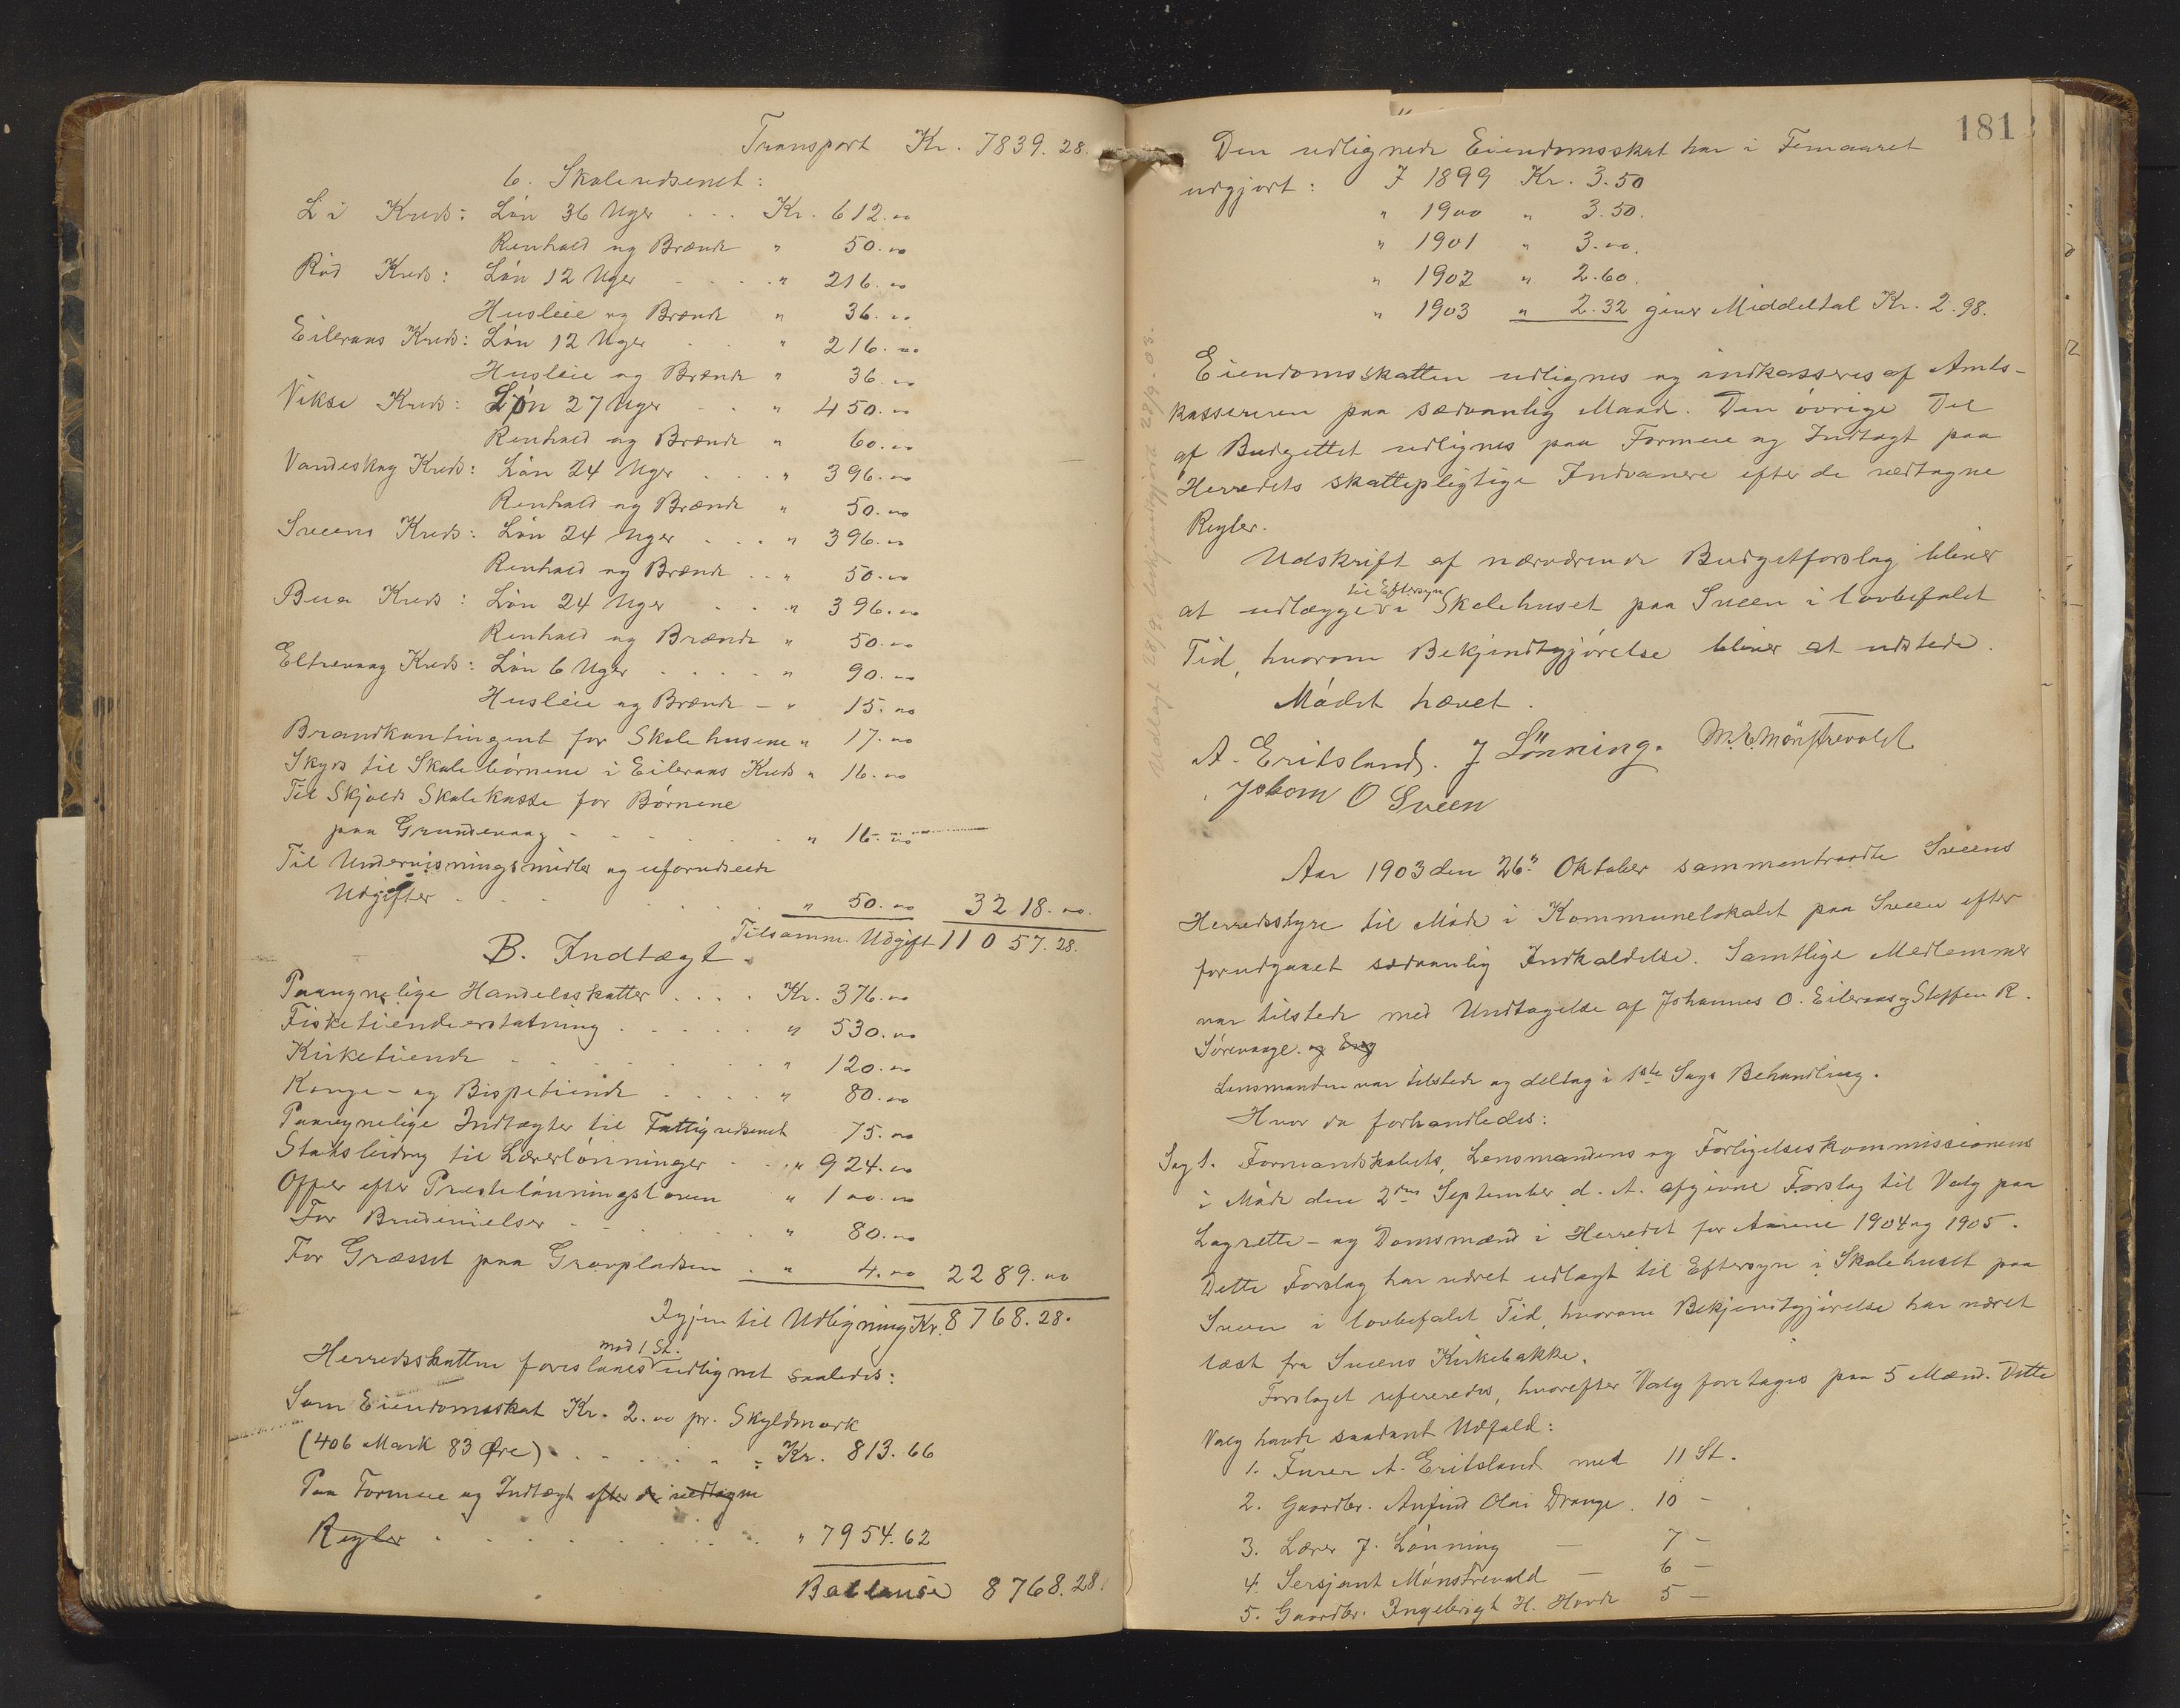 Transport Kr. 7839.28.
6. Skolevæsenet:
Li Kreds: Løn 36 Uger . . . Kr. 612.00
Renhold og Brænde " 50.00
Rød Kreds: Løn 12 Uger . . . . " 216.00
Husleie og Brænde " 36.00
Eileraas Kreds: Løn 12 Uger . . " 216.00
Husleie og Brænde " 36.00
Vikse Kreds: Løn 27 Uger . . " 450.00
Renhold og Brænde " 60.00
Vandeskog Kreds: Løn 24 Uger . . . " 396.00
Renhold og Brænde " 50.00
Sveens Kreds: Løn 24 Uger . . . " 396.00
Renhold og Brænde . . " 50.00
Bua Kreds: Løn 24 Uger . . . " 396.00
Renhold og Brænde " 50.00
Eltrevaag Kreds: Løn 6 Uger . . . . . " 90.00
Husleie og Brænde - " 15.00
Brandkontingent for Skolehusene " 17.00
Skyds til Skolebørnene i Eileraas Kreds " 16.00
Til Skjolds Skolekasse for Børnene
paa Grundevaag - - - - - . . " 16.00
Til Undervisningsmidler og uforudseede
Udgifter . . . . . . . " 50.00 3218.00.
Tilsamm. Udgift 11057.28.
B. Indtægt.
Paaregnelige Handelsskatter . . . . Kr. 376.00
Fisketiendeerstatning . . . . . " 530.00
Kirketiende . . . . . . " 120.00
Konge- og Bispetiende . . . . " 80.00
Paaregnelige Indtægter til Fattigvæsenet 75.00
Statsbidrag til Lærerlønninger . . " 924.00
Offer efter Prestelønningsloven " 100.00
For Brudevielser - - . . . . " 80.00
For Græsset paa Gravpladsen . " 4.00 2289.00
Igjen til Udligning Kr. 8768.28.
mod 1 St.
Herredsskatten foreslaaes udlignet saaledes:
Som Eiendomsskat Kr. 2.00 pr. Skyldmark
(406 Mark 83 Øre) . . . . . . = Kr. 813.66
Paa Formue og Indtægt efter de vedtagne
Regler . . . . . . . . . " 7954.62
Ballanse 8768.28.
181
Den udlignede Eiendomsskat har i Femaaret
udgjort: I 1899 Kr. 3.50
" 1900 " 3.50.
" 1901 " 3.00.
" 1902 " 2.60.
" 1903 " 2.32 giver Middeltal Kr. 2.98.
Eiendomsskatten udlignes og indkasseres af Amts-
kassereren paa sædvanlig Maade. Den øvrige Del
af Budgettet udlignes paa Formue og Indtægt paa
Herredets skattepligtige Indvaanere efter de vedtagne
Regler.
Udskrift af nærværende Budgetforslag bliver
til Eftersyn
at udlægge i Skolehuset paa Sveen i lovbefalet
Tid, hvorom Bekjendtgjørelse bliver at udstede.
Mødet hævet.
Udlagt 28/9. bekjendtgjort 28/9-03.
A. Eritsland. J Lønning. M. E. Mønstrevold
Jokom O Sveen
Aar 1903 den 26. Oktober sammentraadte Sveens
Herredsstyre til Møde i Kommunelokalet paa Sveen efter
forudgaaet sædvanlig Indkaldelse. Samtlige Medlemmer
var tilstede med Undtagelse af Johannes O. Eileraas og Steffen R.
Sørevaage. og Eng
Lensmanden var tilstede og deltog i 1ste Sags Behandling.
Hvor da forhandledes:
Sag 1. Formandskabets, Lensmandens og Forligelseskommissionens
i Møde den 2den September d. A. afgivne Forslag til Valg paa
Lagrette- og Domsmænd i Herredet for Aarene 1904 og 1905.
Dette Forslag har været udlagt til Eftersyn i Skolehuset paa
Sveen i lovbefalet Tid, hvorom Bekjendtgjørelse har været
læst fra Sveens Kirkebakke.
Forslaget refereredes, hvorefter Valg foretages paa 5 Mænd. Dette
Valg havde saadant Udfald:
1. Furer A. Eritsland med 11 St.
2. Gaardbr. Anfind Olai Drange. 10 -
3. Lærer J. Lønning - 7 -
4. Sersjant Mønstrevold - 6 -
5. Gaardbr. Ingebrigt H. Hovde 5 -